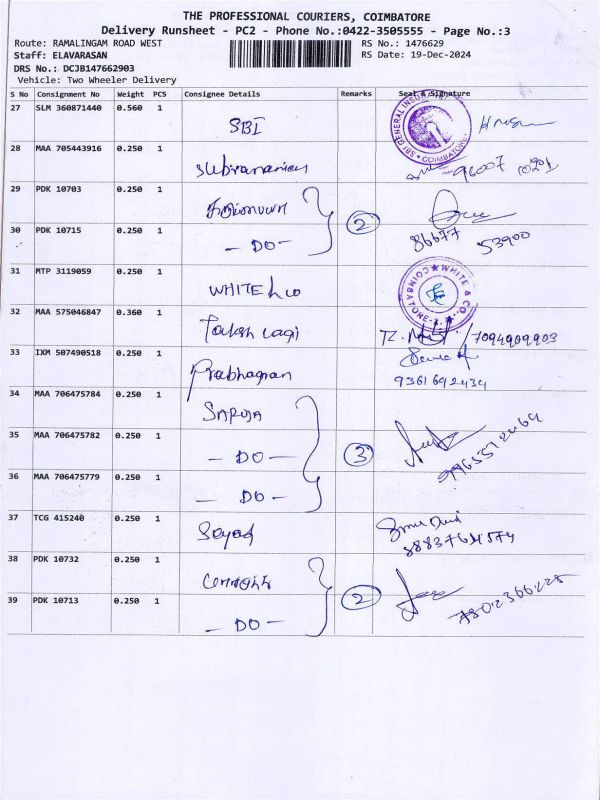 THE PROFESSIONAL COURIERS, COIMBATORE
Delivery Runsheet - PC2 - Phone No.:0422-3505555 - Page No.:3
Route: RAMALINGAM ROAD WEST RS No.: 1476629
Staff: ELAVARASAN RS Date: 19-Dec-2024
DRS No.: DCJB147662903
Vehicle: Two Wheeler Delivery
S No Consignment No Weight PCS Consignee Details Remarks Seal & Signature
27 SLM 360871440 0.560 1 SBI SBI GENERAL COIMBATORE
28 MAA 705443916 0.250 1 Subramaniam 96007
29 PDK 10703 0.250 1
2
30 PDK 10715 0.250 1 - DO - 86677 53900
31 MTP 3119059 0.250 1 WHITE & CO WHITE & CO. COIMBATORE
32 MAA 575046847 0.360 1 7094909903
33 IXM 507490518 0.250 1 Prabhagran 9361692439
34 MAA 706475784 0.250 1 SAROJA
35 MAA 706475782 0.250 1 - DO - 3
36 MAA 706475779 0.250 1 - DO -
37 TCG 415240 0.250 1
38 PDK 10732 0.250 1
2
39 PDK 10713 0.250 1 - DO -